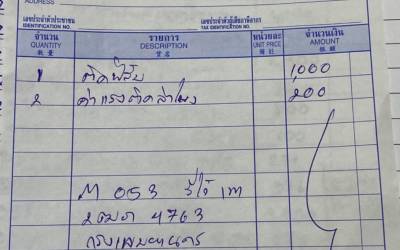 ADDRESS
เลขประจำตัวประชาชน เลขประจำตัวผู้เสียภาษีอากร
IDENTIFICATION NO. TAX IDENTIFICATION NO.
จำนวน รายการ หน่วยละ จำนวนเงิน
QUANTITY DESCRIPTION UNIT PRICE AMOUNT
數量 貨名 單價 銀額
1 ติดฟิล์ม 1,000
2 ค่าแรงติดลำโพง 200
M 053
4763
กรุงเทพมหานคร